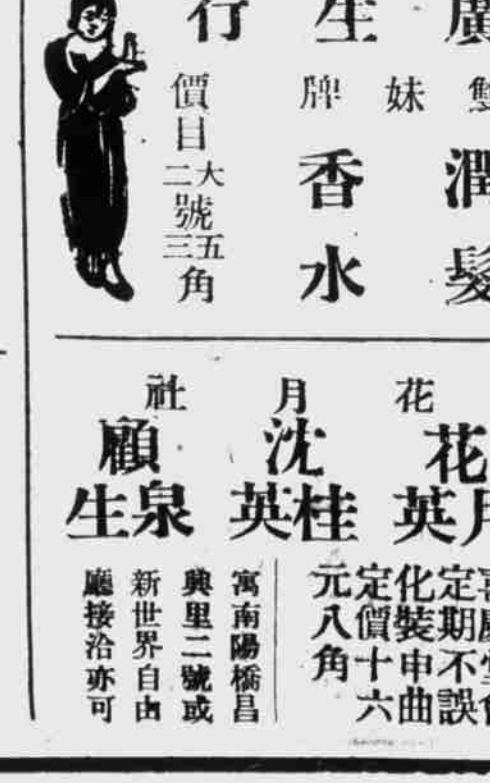 廣生行
雙妹牌
潤髮
香水
價目
大號五角
二號三角
花月社
花月英
沈桂英
顧泉生
喜慶堂會
定期不誤
化裝申曲
定價十六
元八角
寓南陽橋昌
興里二號或
新世界自由
廳接洽亦可